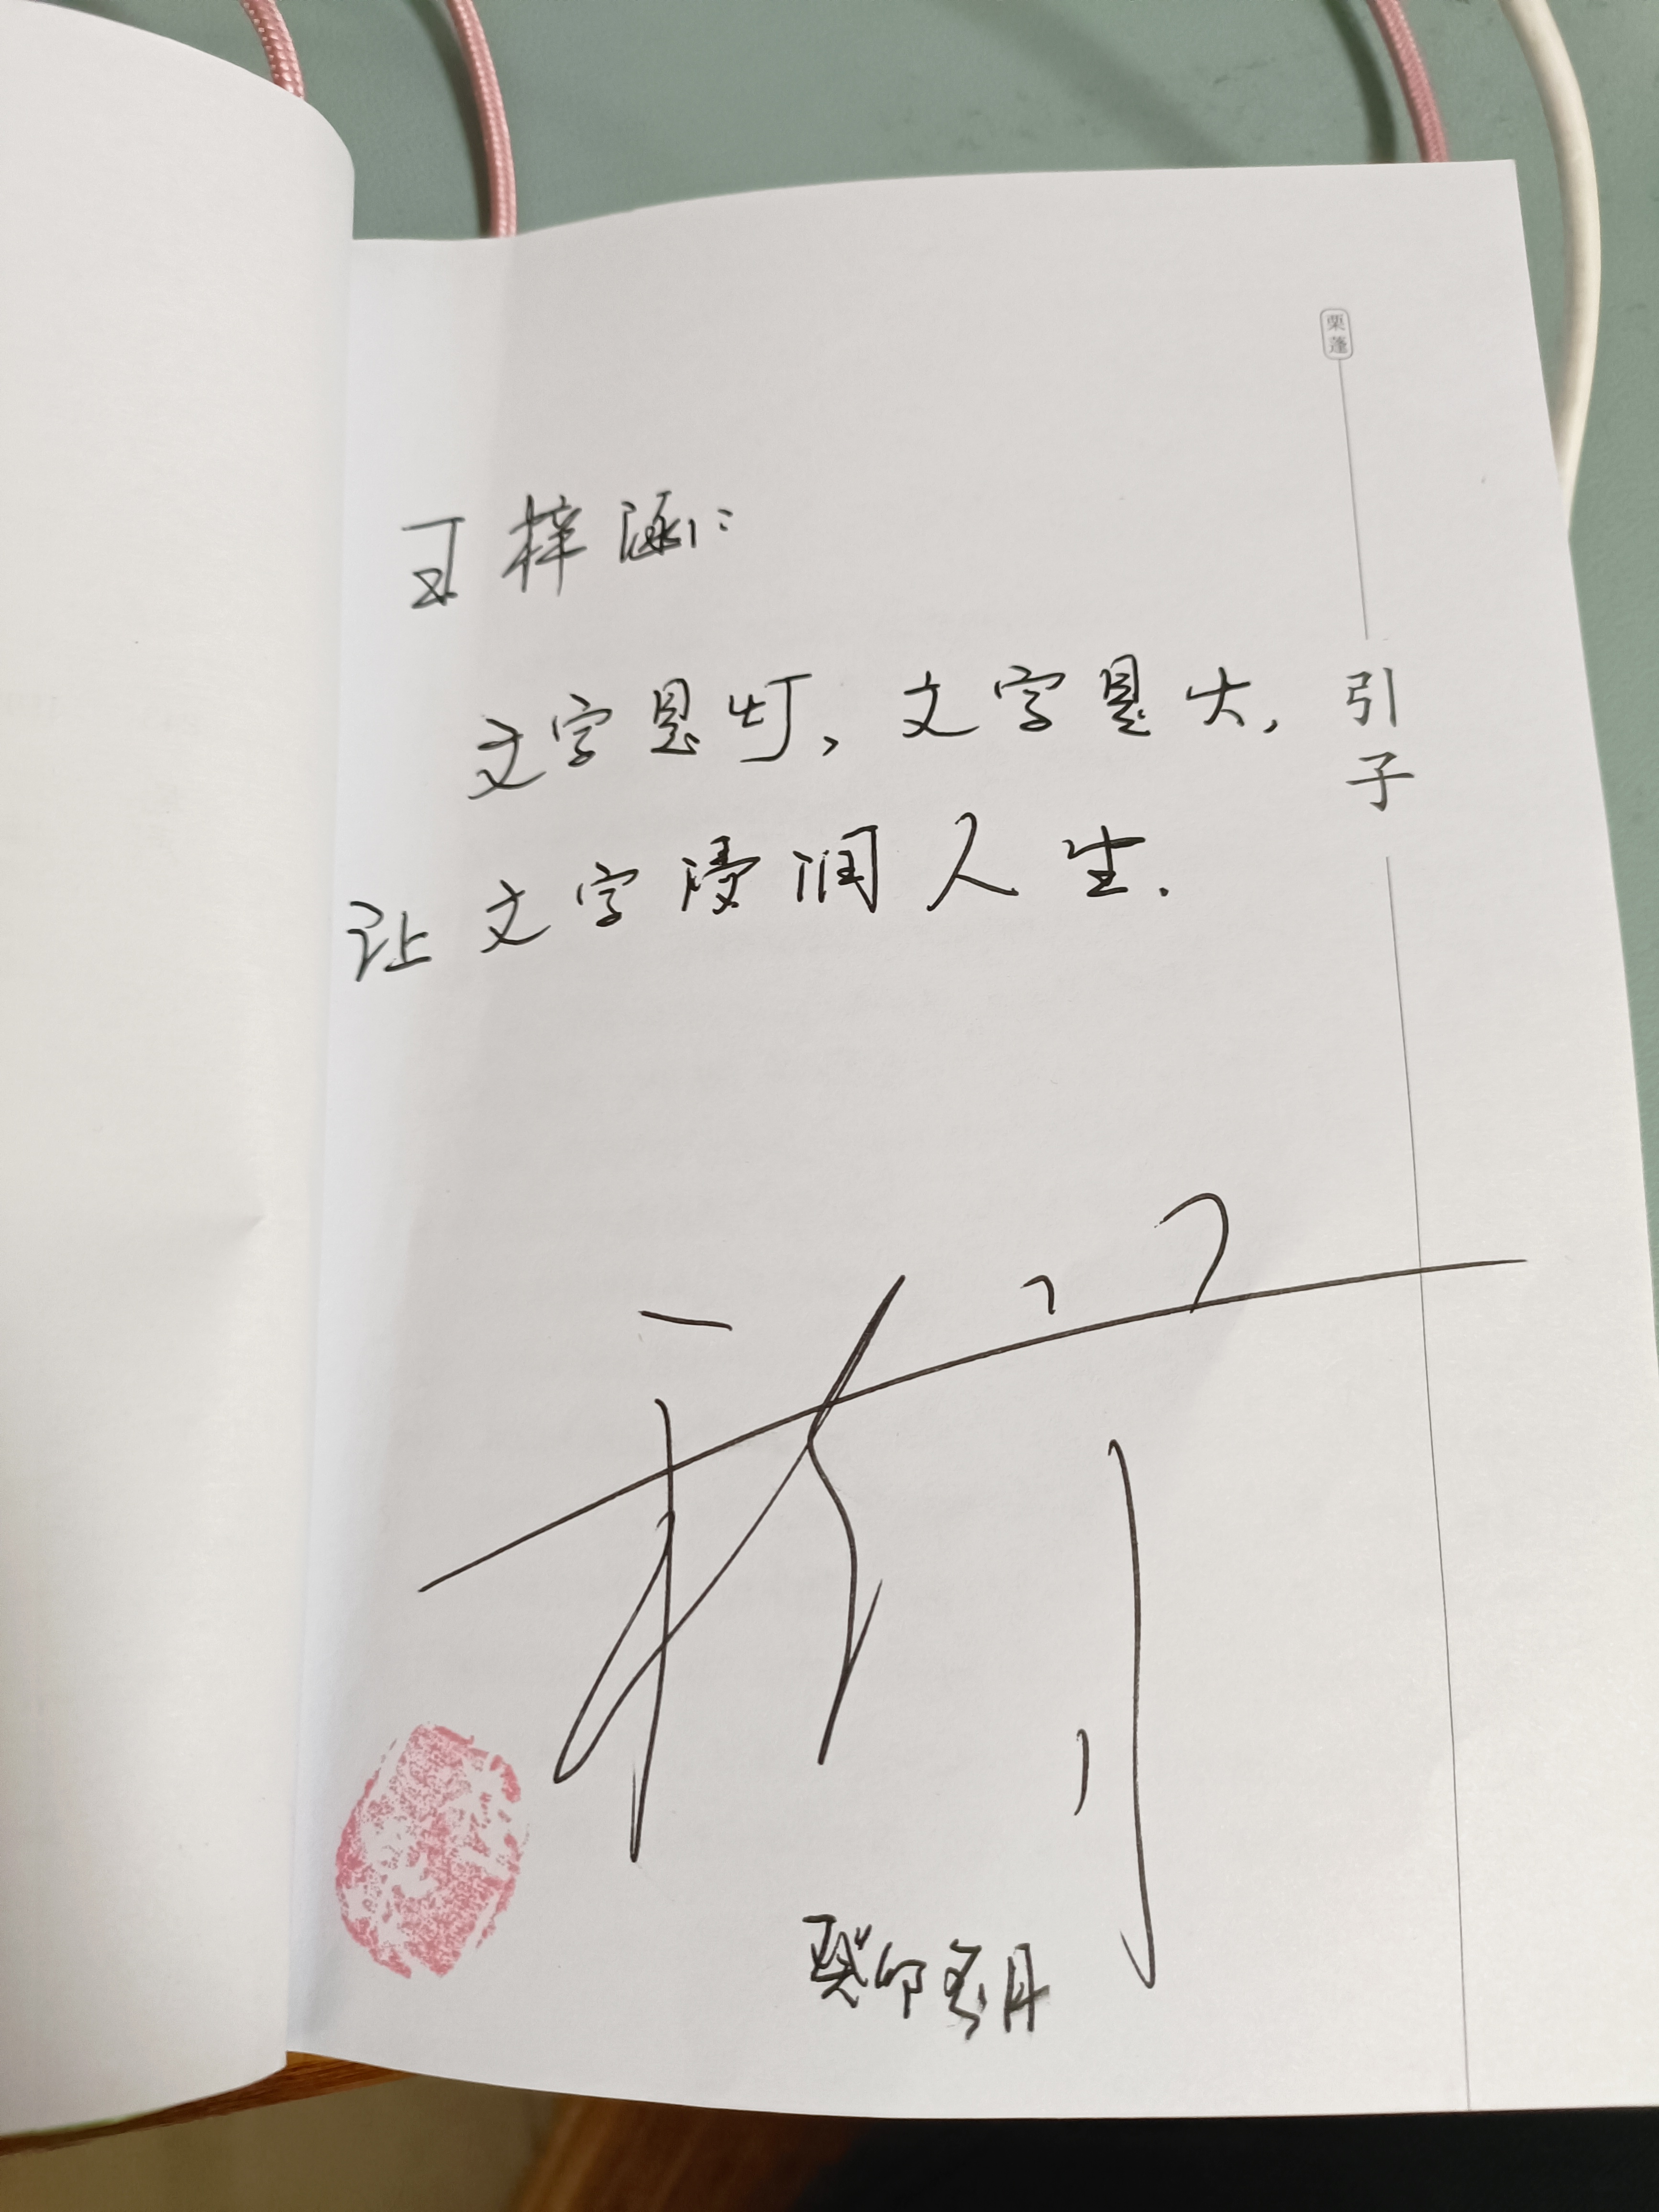 王梓涵：
文字是灯，文字是火，
让文字浸润人生.
癸卯冬月
栗蓬
引子